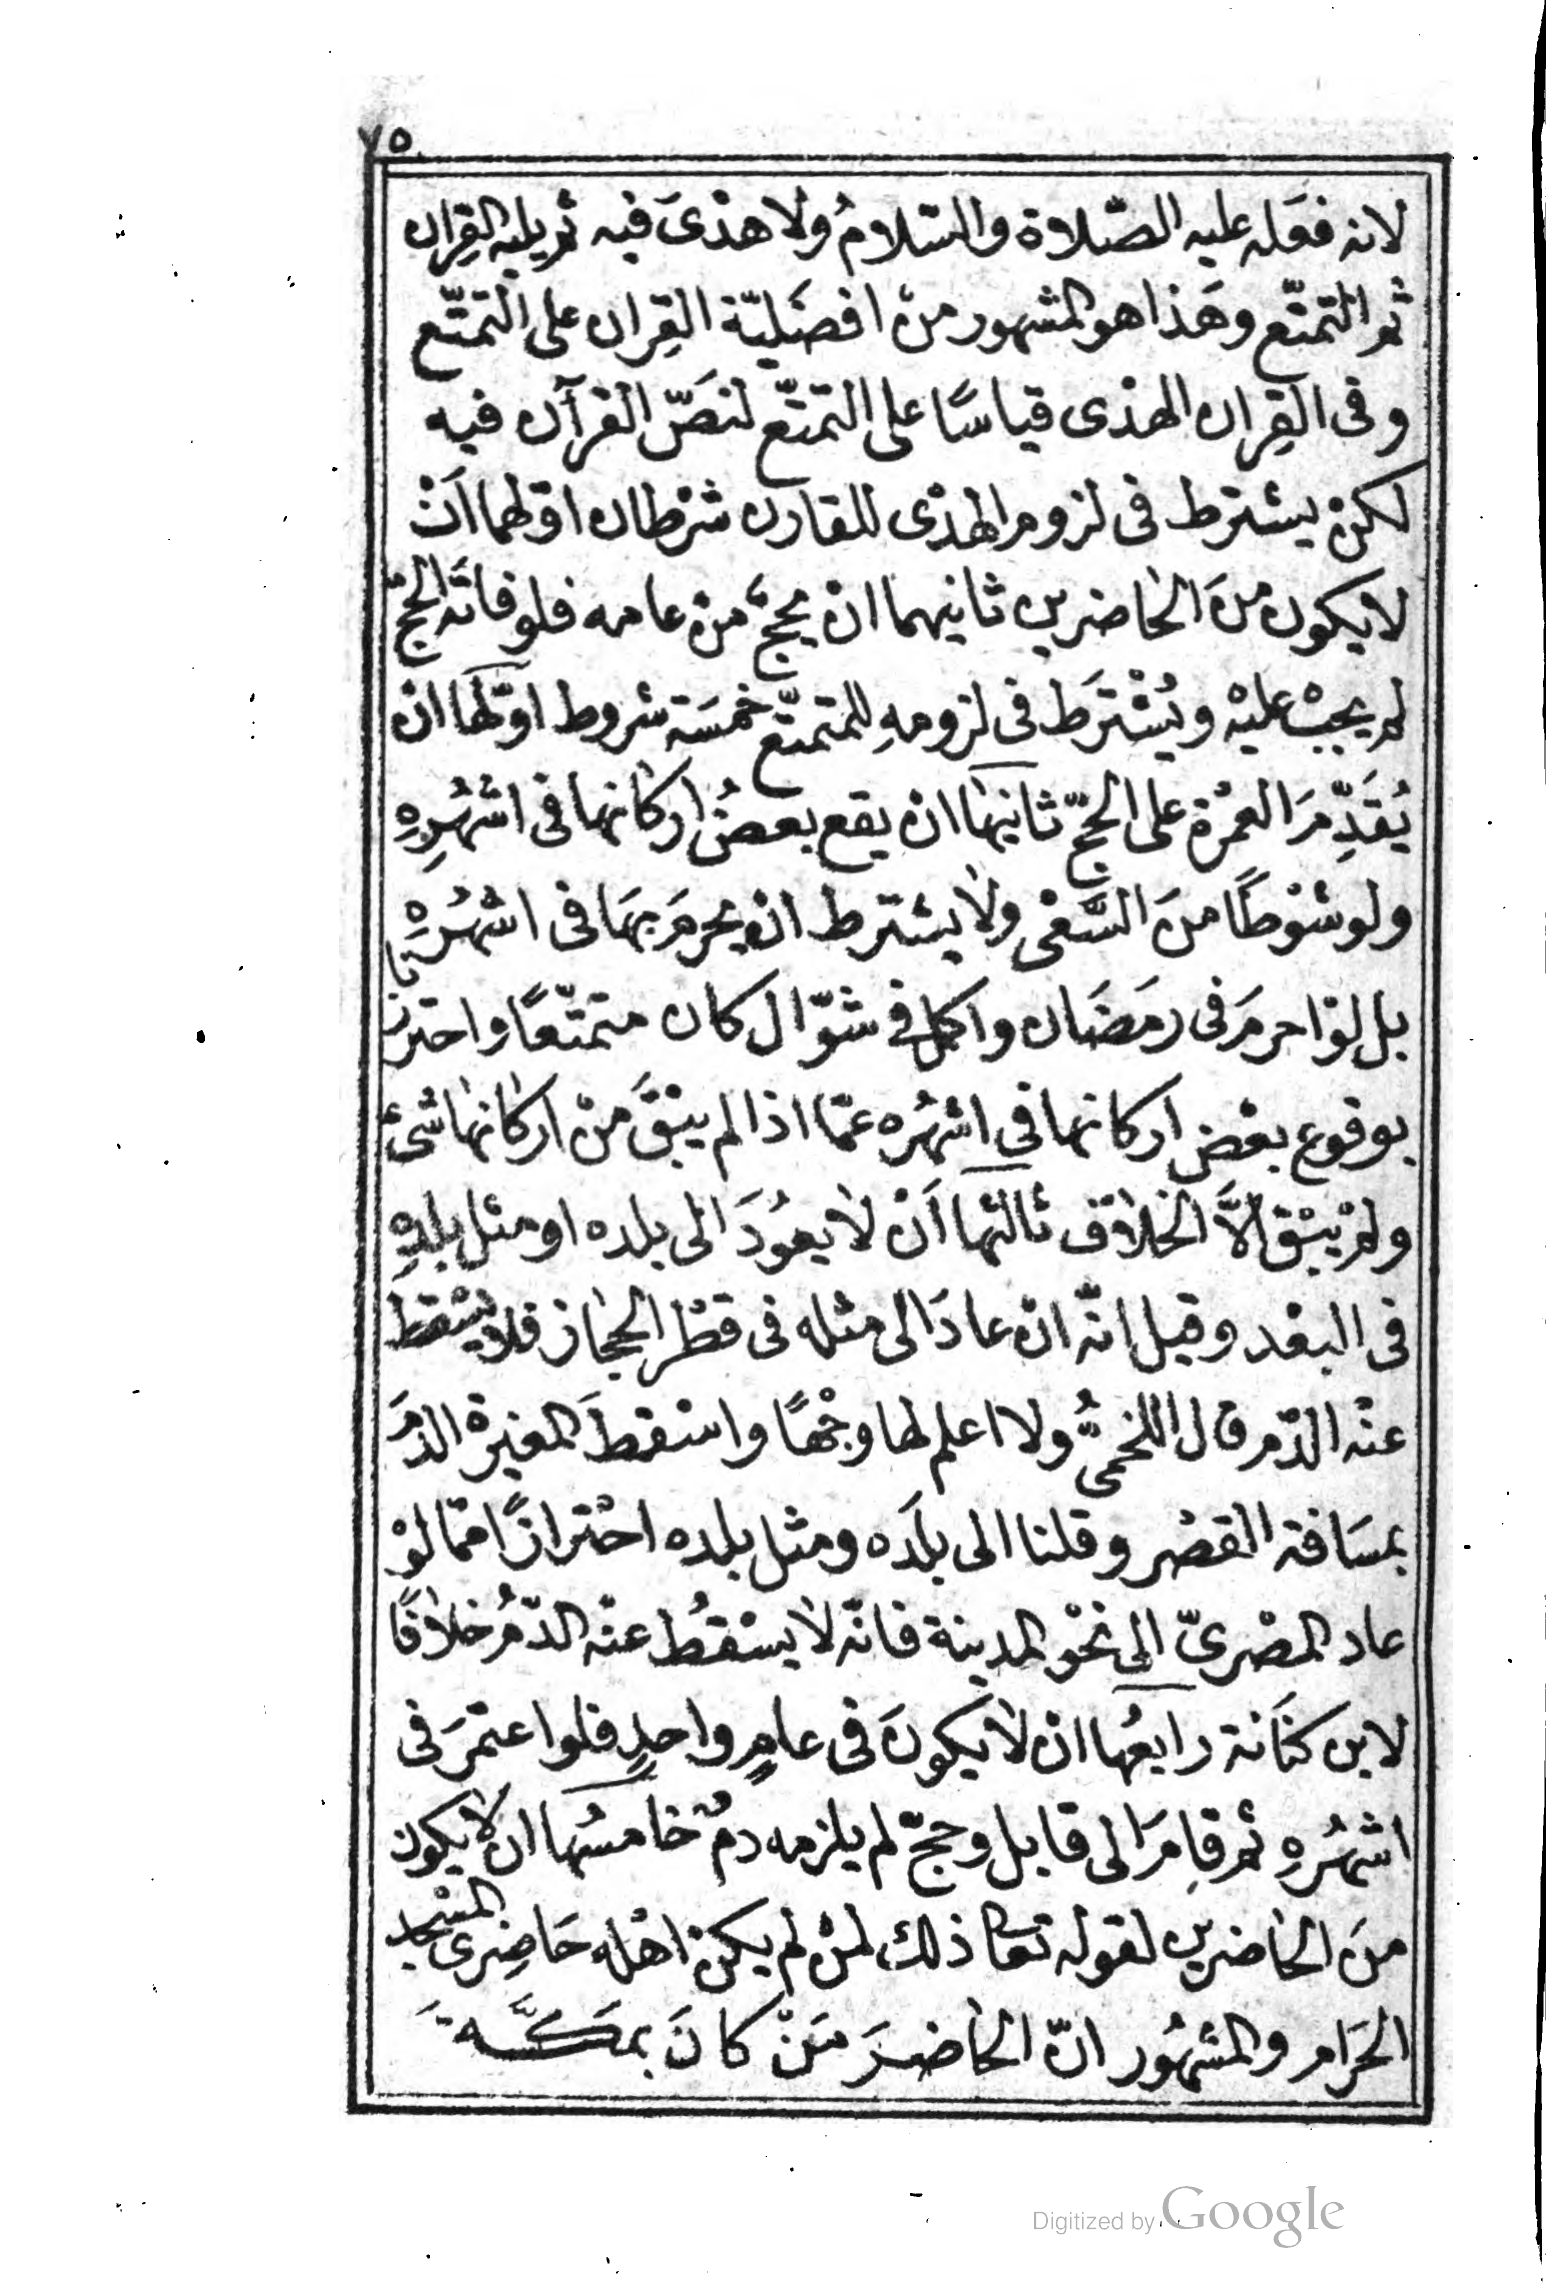 ٧٥
لانه فعَله عليه الصّلاة والسّلامُ ولا هدْىَ فيه ثم يليه القِران
ثم التمتّع وهَذا هو المشهور منْ افضَليّة القِران على التمتّع
وفى القِران الهدْى قياسًا على التمتّع لنصّ القرآن فيه
لكنْ يشترط فى لزوم الهدْى للقارن شرْطان اوّلهما اَنْ
لا يكون منَ الحاضرين ثانيهما انْ يحجّ منْ عامه فلو فاتَه الحجّ
لم يجبْ عليْه ويُشْترَط فى لزومهِ للمتمتّع خمسَة شروط اوّلها انْ
يُقَدِّمَ العمْرة على الحجّ ثانيها انْ يقع بعضُ اركانها فى اشْهُرِهِ
ولو شوْطًا منَ السَّعْى ولا يشترط انْ يحرمَ بهَا فى اشهُرِهِ
بل لوْ احرمَ فى رمَضَان واكمل فى شوّال كان متمتّعًا واحترزنا
بوقوع بعْض اركانها فى اشهُره عمّا اذا لم يبْقَ منْ اركانها شىْء
ولمْ يبْق الاَّ الحلاق ثالثها اَنْ لا يعُودَ الى بلده او مثل بلدِهِ
فى البعْد وقيل انّه انْ عادَ الى مثله فى قطْر الحجاز فلا يسْقط
عنْه الدّم قال اللخمىُّ ولا اعلم لها وجْهًا واسْقطَ المغيرة الدّمَ
بمسَافة القصْر وقلنا الى بلَده ومثل بلده احْترازًا ممّا لوْ
عاد المصْرىّ الى نحْو المدينة فانّه لا يسْقُط عنْه الدّمُ خلافًا
لابن كنَانة رابعُها انْ لا يكونَ فى عامٍ واحدٍ فلو اعتمَرَ فى
اشهُرِهِ ثم قامَ الى قابل وحجّ لم يلزمه دمٌ خامسُها ان لا يكون
منَ الحاضرين لقوله تعالى ذلك لمنْ لم يكنْ اهْله حَاضِرى المسْجد
الحَرام والمشهُور انّ الحاضرَ مَنْ كانَ بمَكَّةَ
Digitized by Google